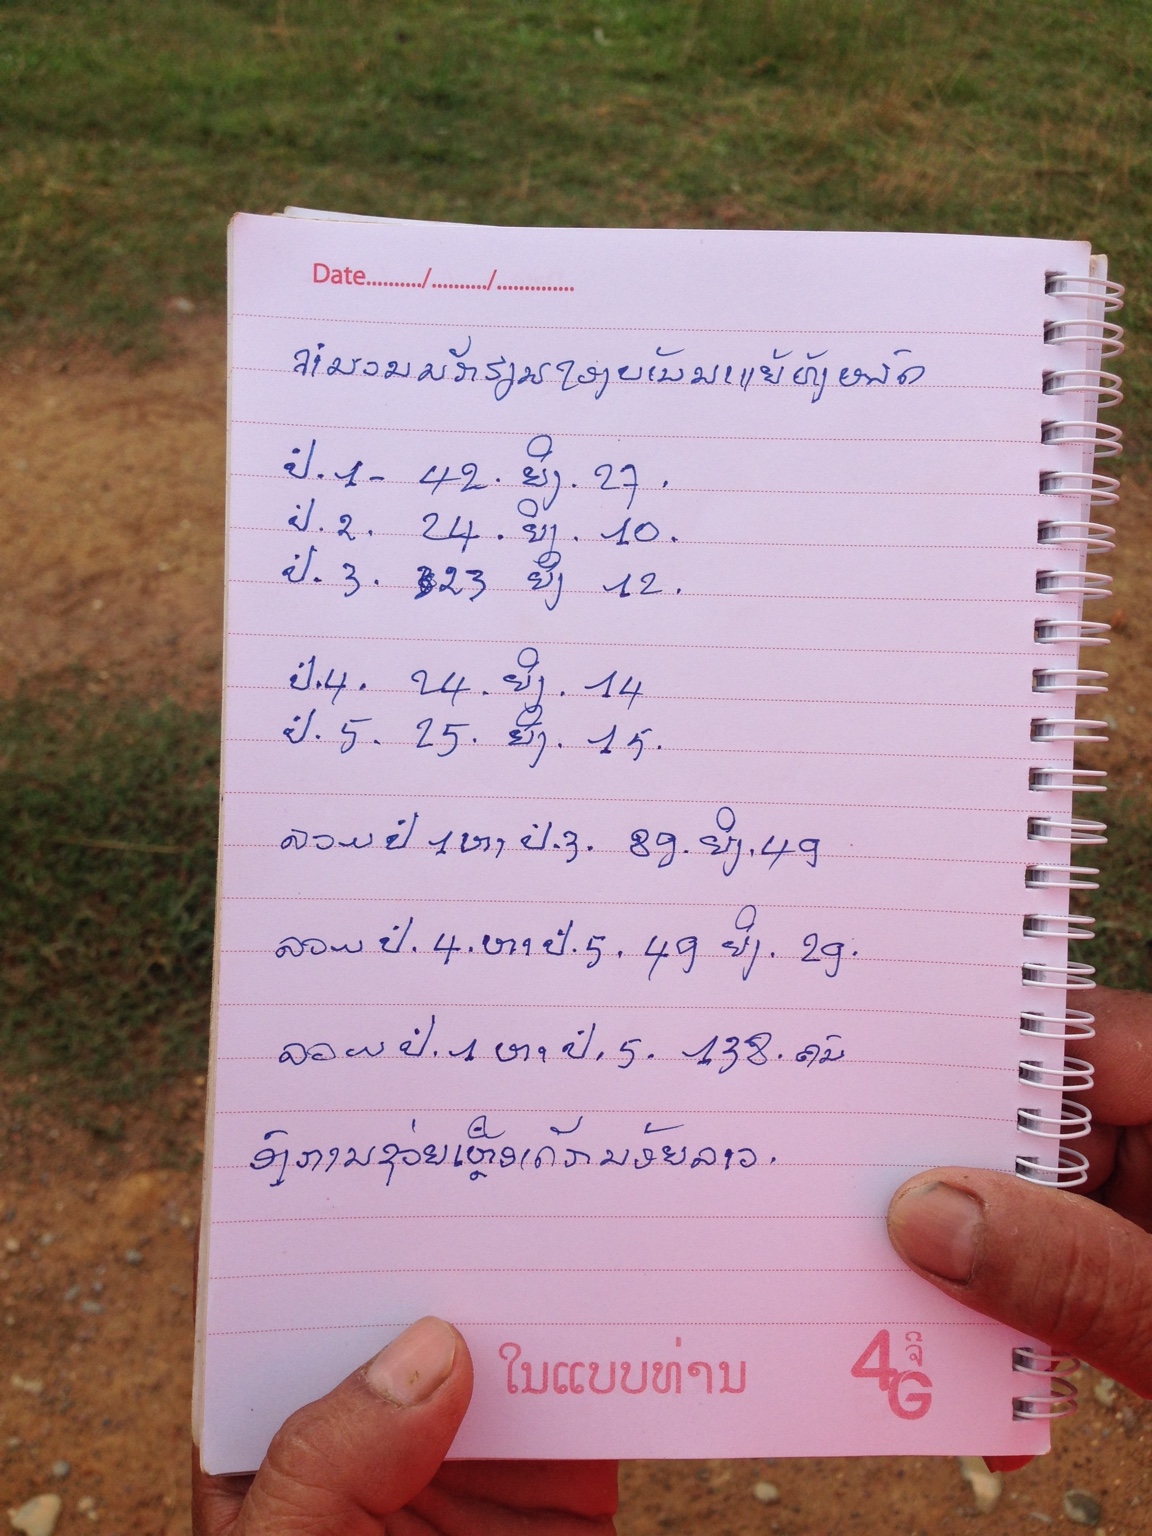 Date........../........../..............
ຈຳນວນນັກຮຽນ ໂຮງຮຽນ ທັງໝົດ
ປ່. 1 - 42. ຍິງ. 27.
ປ່. 2. 24. ຍິງ. 10.
ປ່. 3. 23 ຍິງ 12.
ປ່. 4. 24. ຍິງ. 14
ປ່. 5. 25. ຍິງ. 15.
ລວມ ປ່ 1 ຫາ ປ່. 3. 89. ຍິງ. 49
ລວມ ປ່. 4. ຫາ ປ່. 5. 49 ຍິງ. 29.
ລວມ ປ່. 1 ຫາ ປ່. 5. 138. ຄົນ
ອົງການຊ່ວຍເຫຼືອເດັກນ້ອຍລາວ.
ໃນແບບທ່ານ 4G ຈີ